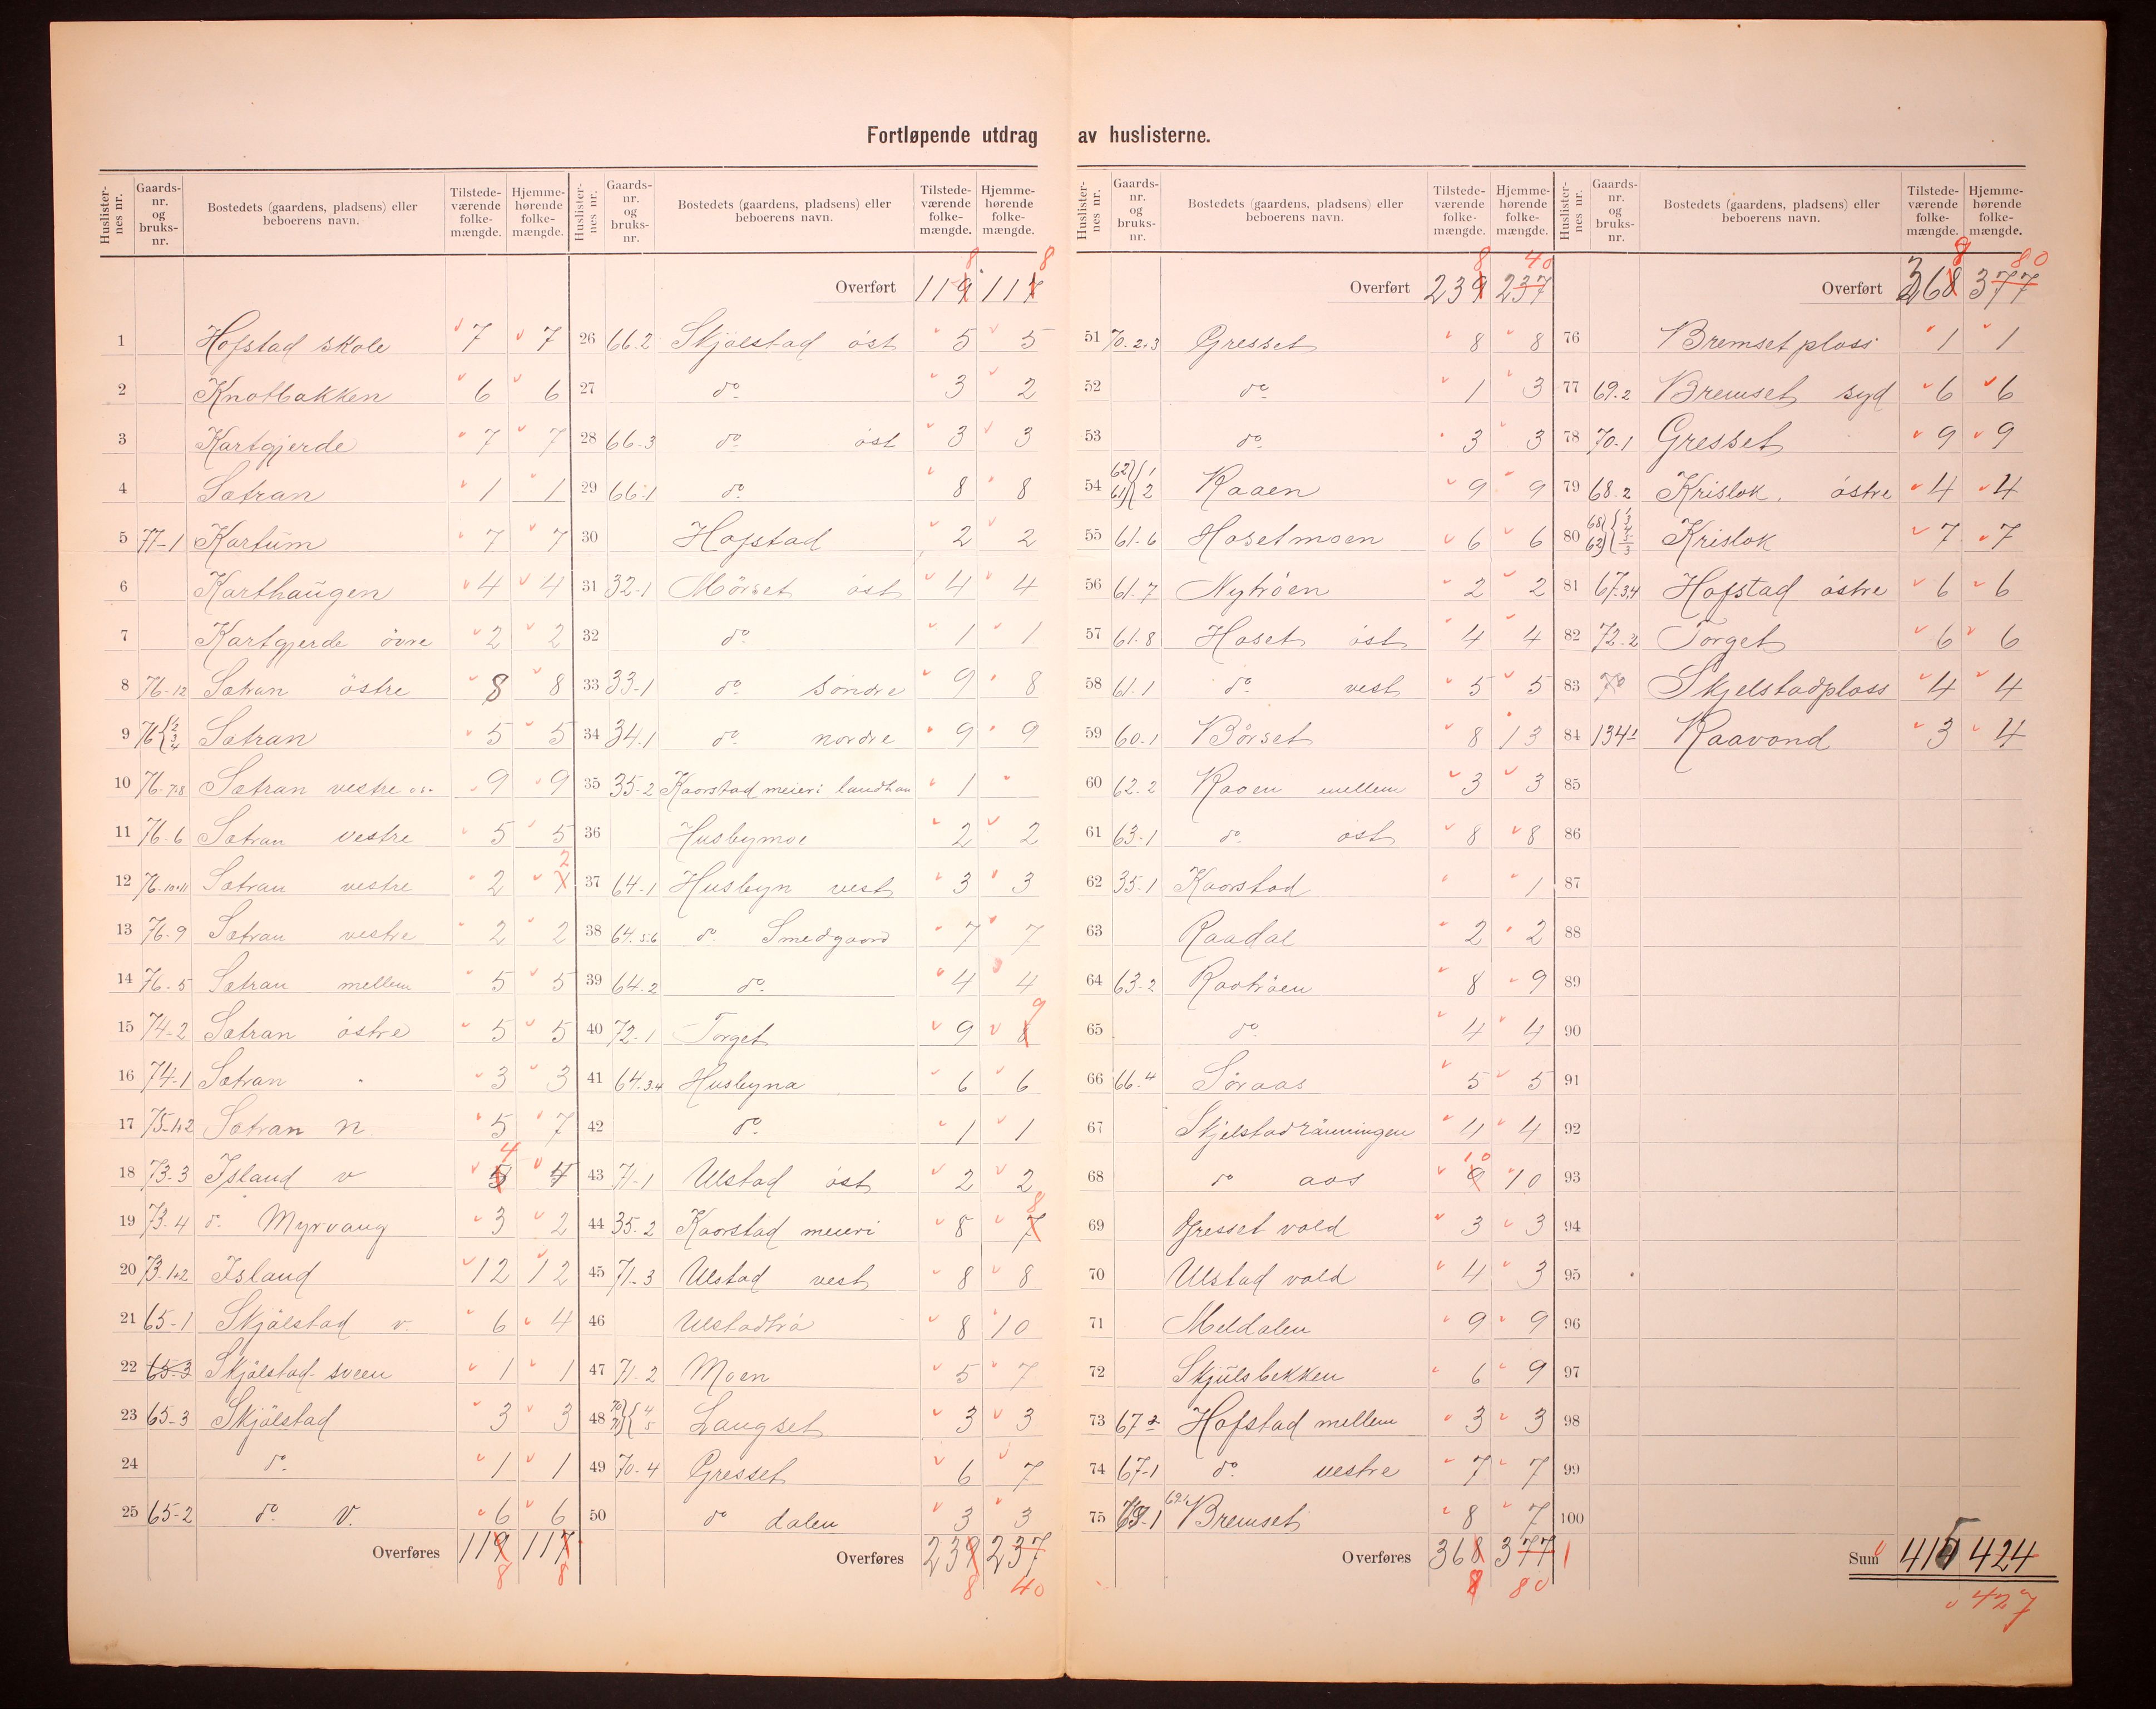 Fortløpende utdrag av huslisterne.
Huslister-nes nr. Gaards-nr. og bruks-nr. Bostedets (gaardens, pladsens) eller beboerens navn. Tilstede-værende folke-mængde. Hjemme-hørende folke-mængde.
1 Hofstad skole 7 7
2 Knotbakken 6 6
3 Kartgjerde 7 7
4 Sætran 1 1
5 77-1 Kartum 7 7
6 Karthaugen 4 4
7 Kartgjerde övre 2 2
8 76-12 Sætran östre 8 8
9 76 {2 3 4 Sætran 5 5
10 76-7.8 Sætran vestre 9 9
11 76-6 Sætran vestre 5 5
12 76-10.11 Sætran vestre 2 2
13 76-9 Sætran vestre 2 2
14 76-5 Sætran mellem 5 5
15 74-2 Sætran östre 5 5
16 74-1 Sætran 3 3
17 75-1+2 Sætran n 5 7
18 73-3 Island v 5 4 4
19 73-4 do Myrvang 3 2
20 73-1+2 Island 12 12
21 65-1 Skjölstad v. 6 4
22 65-3 Skjölstad-sveen 1 1
23 65-3 Skjölstad 3 3
24 do 1 1
25 65-2 do V. 6 6
Overføres 119 117
8 8
Huslister-nes nr. Gaards-nr. og bruks-nr. Bostedets (gaardens, pladsens) eller beboerens navn. Tilstede-værende folke-mængde. Hjemme-hørende folke-mængde.
8 8
Overført 119 117
26 66.2 Skjölstad öst 5 5
27 do 3 2
28 66-3 do öst 3 3
29 66-1 do 8 8
30 Hofstad 2 2
31 32-1 Mörset öst 4 4
32 do 1 1
33 33-1 do Söndre 9 8
34 34-1 do nordre 9 9
35 35-2 Kaorstad meieri landhan 1
36 Husbymoe 2 2
37 64-1 Husbyn vest 3 3
38 64.5.6 do Smedgaard 7 7
39 64-2 do 4 4
40 72-1 Torget 9 8 9
41 64.3.4 Husbyna 6 6
42 do 1 1
43 71-1 Ulstad öst 2 2
44 35-2 Kaorstad meieri 8 7 8
45 71-3 Ulstad vest 8 8
46 Ulstadtrö 8 10
47 71.2 Moen 5 7
48 70 71 } { 4 5 Langset 3 3
49 70-4 Gresset 6 7
50 do dalen 3 3
Overføres 239 237
8 40
Huslister-nes nr. Gaards-nr. og bruks-nr. Bostedets (gaardens, pladsens) eller beboerens navn. Tilstede-værende folke-mængde. Hjemme-hørende folke-mængde.
8 40
Overført 239 237
51 70.2.3 Gresset 8 8
52 do 1 3
53 do 3 3
54 62 61 } { 1 2 Raaen 9 9
55 61-6 Hosetmoen 6 6
56 61.7 Nytröen 2 2
57 61.8 Hoset öst 4 4
58 61.1 do vest 5 5
59 60.1 Börset 8 13
60 62.2 Raaen mellem 3 3
61 63-1 do öst 8 8
62 35-1 Kaorstad 1
63 Raadal 2 2
64 63-2 Raatröen 8 9
65 do 4 4
66 66.4 Söraas 5 5
67 Skjelstadrönningen 4 4
68 do aas 9 10 10
69 Gresset vald 3 3
70 Ulstad vald 4 3
71 Meldalen 9 9
72 Skjulsbekken 6 9
73 67 2 Hofstad mellem 3 3
74 67-1 do vestre 7 7
75 69-1 Bremset 8 7
Overføres 368 377
8 80
Huslister-nes nr. Gaards-nr. og bruks-nr. Bostedets (gaardens, pladsens) eller beboerens navn. Tilstede-værende folke-mængde. Hjemme-hørende folke-mængde.
8 80
Overført 368 377
76 Bremset plass 1 1
77 69.2 Bremset syd 6 6
78 70-1 Gresset 9 9
79 68-2 Krislok. östre 4 4
80 68 62 } { Krislok 7 7
81 67.3,4 Hofstad östre 6 6
82 72-2 Torget 6 6
83 Skjelstadplass 4 4
84 134 1 Raavand 3 4
85
86
87
88
89
90
91
92
93
94
95
96
97
98
99
100
Sum 415 424
427